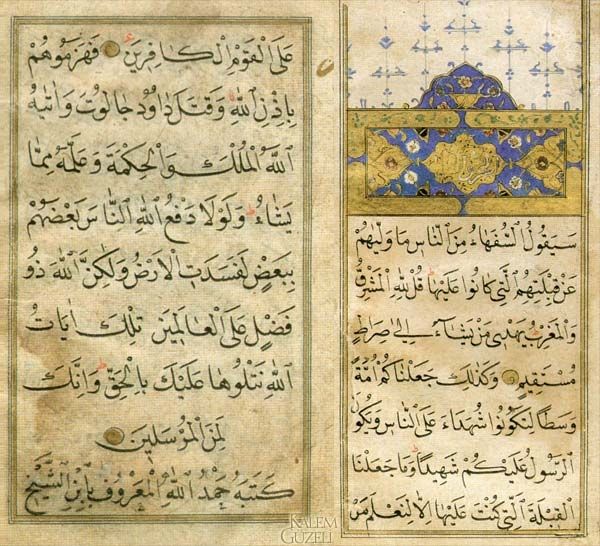 سَيَقُولُ السُّفَهَاءُ مِنَ النَّاسِ مَا وَلّٰيهُمْ
عَنْ قِبْلَتِهِمُ الَّتِي كَانُوا عَلَيْهَا قُلْ لِلّٰهِ الْمَشْرِقُ
وَالْمَغْرِبُ يَهْدِي مَنْ يَشَاءُ إِلَى صِرَاطٍ
مُسْتَقِيمٍ وَكَذٰلِكَ جَعَلْنَاكُمْ أُمَّةً
وَسَطًا لِتَكُونُوا شُهَدَاءَ عَلَى النَّاسِ وَيَكُونَ
الرَّسُولُ عَلَيْكُمْ شَهِيدًا وَمَا جَعَلْنَا
الْقِبْلَةَ الَّتِي كُنْتَ عَلَيْهَا إِلَّا لِنَعْلَمَ مَنْ
عَلَى الْقَوْمِ الْكَافِرِينَ فَهَزَمُوهُمْ
بِاِذْنِ اللّٰهِ وَقَتَلَ دَاوُدُ جَالُوتَ وَاٰتٰيهُ
اللّٰهُ الْمُلْكَ وَالْحِكْمَةَ وَعَلَّمَهُ مِمَّا
يَشَاءُ وَلَوْلَا دَفْعُ اللّٰهِ النَّاسَ بَعْضَهُمْ
بِبَعْضٍ لَفَسَدَتِ الْاَرْضُ وَلٰكِنَّ اللّٰهَ ذُو
فَضْلٍ عَلَى الْعَالَمِينَ تِلْكَ اٰيَاتُ
اللّٰهِ نَتْلُوهَا عَلَيْكَ بِالْحَقِّ وَاِنَّكَ
لَمِنَ الْمُرْسَلِينَ
كَتَبَهُ حَمْدُ اللّٰهِ الْمَعْرُوفُ بِابْنِ الشَّيْخِ
KALEM
GUZELI